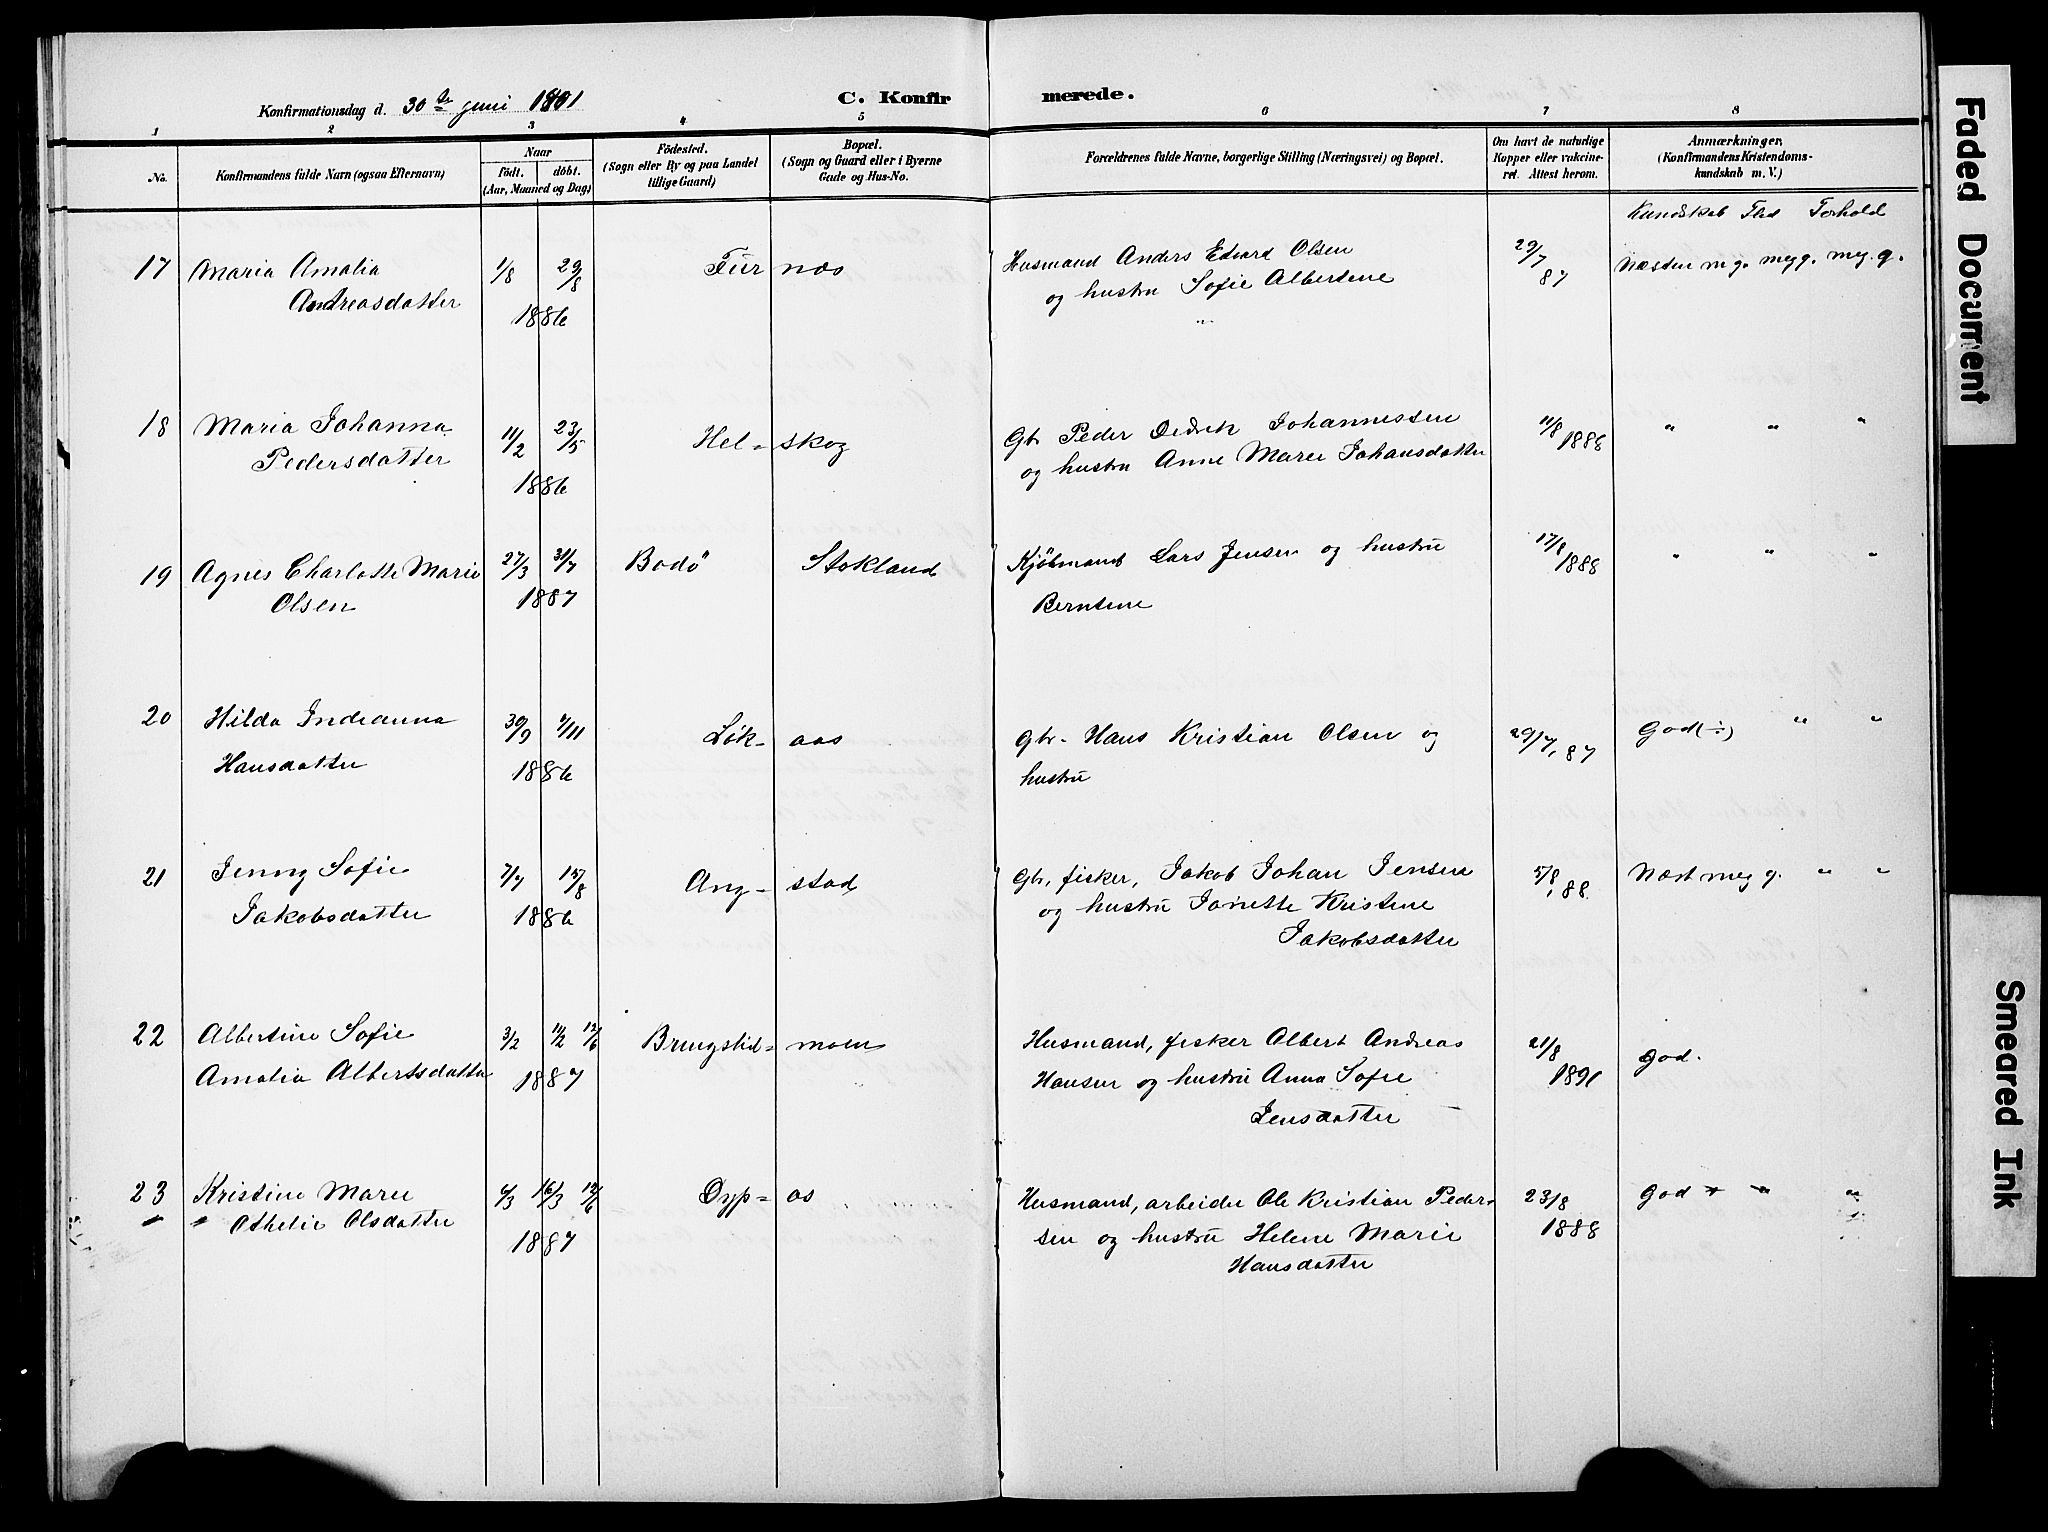 Konfirmationsdag d. 30te juni 1901
C. Konfirmerede.
1 2 3 4 5 6 7 8
No.
Konfirmandens fulde Navn (ogsaa Efternavn)
Naar
født. døbt.
(Aar, Maaned og Dag)
Fødested.
(Sogn eller By og paa Landet
tillige Gaard)
Bopæl.
(Sogn og Gaard eller i Byerne
Gade og Hus-No.
Forældrenes fulde Navne, borgerlige Stilling (Næringsvei) og Bopæl.
Om havt de naturlige
Kopper eller vakcine-
ret. Attest herom.
Anmærkninger,
(Konfirmandens Kristendoms-
kundskab m. V.)
Kundskab Flid Forhold
17 Maria Amalia 1/8 29/8 Furnes Husmand Anders Edvard Olsen 29/7 Næsten m g. meg g. meg. g.
Andreasdatter 1886 og hustru Sofie Albertene 87
18 Maria Johanna 11/2 23/5 Hel- skog Gbr Peder Dedrik Johannessen 11/8 1888 " " "
Pedersdatter 1886 og hustru Anne Marie Johansdatter
19 Agnes Charlotte Marie 27/3 31/7 Bodö Stokland Kjöbmand Lars Jensen og hustru 17/8 1888 " " "
Olsen 1887 Berntine
20 Hilda Indianna 30/9 7/11 Løk- aas Gbr. Hans Kristian Olsen og 29/7, 87 God (÷) " "
Hansdatter 1886 hustru
21 Jenny Sofie 7/7 15/8 Ang- stad Gbr, fisker, Jakob Johan Jensen 5/8, 88 Næst meg g. " "
Jakobsdatter 1886 og hustru Jonette Kristine
Jakobsdatter
22 Albertine Sofie 3/2 11/2 12/6 Bringslid- moen Husmand, fisker Albert Andreas 21/8 God.
Amalia Albertsdatter 1887 Hansen og hustru Anna Sofie 1891
Jensdatter
23 Kristine Marie 4/3 16/3 12/6 Dyp- os Husmand, arbeider Ole Kristian Peder- 23/8 God + " "
" Othelie Olsdatter 1887 sen og hustru Helene Marie 1888
Hansdatter
Faded Document
Smeared Ink